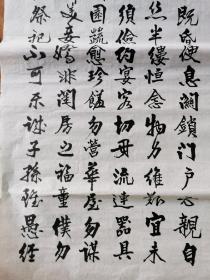 既昏便息關鎖門戶必親自
絲半縷恒念物力維艱宜未
須儉約宴客切毋流連器具
園蔬愈珍饈勿營華屋勿謀
美妾嬌非閨房之福童僕勿
祭祀不可不誠子孫雖愚經